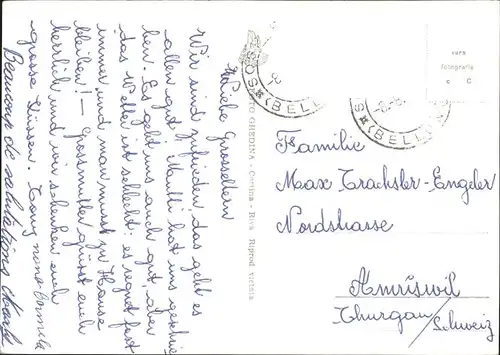 Liebe Grosseltern
Wir sind zufrieden, das geht es
allen gut. Mutti hat uns geschrie-
ben. Es geht uns auch gut, aber
das Wetter ist schlecht. es regnet fast
immer und man musst zu Hause
bleiben! — Grossmutter grüsst euch
herzlich und wir schenken euch
grosse Küssen. Tony nonna
Beaucoup de salutations
FOTO GHEDINA - Cortina - Ripr. Riprod. vietata
(BELLUNO)
(BELLUNO)
vera
fotografia
Familie
Max Trachsler-Engeler
Nordstrasse
Amriswil
Thurgau/Schweiz